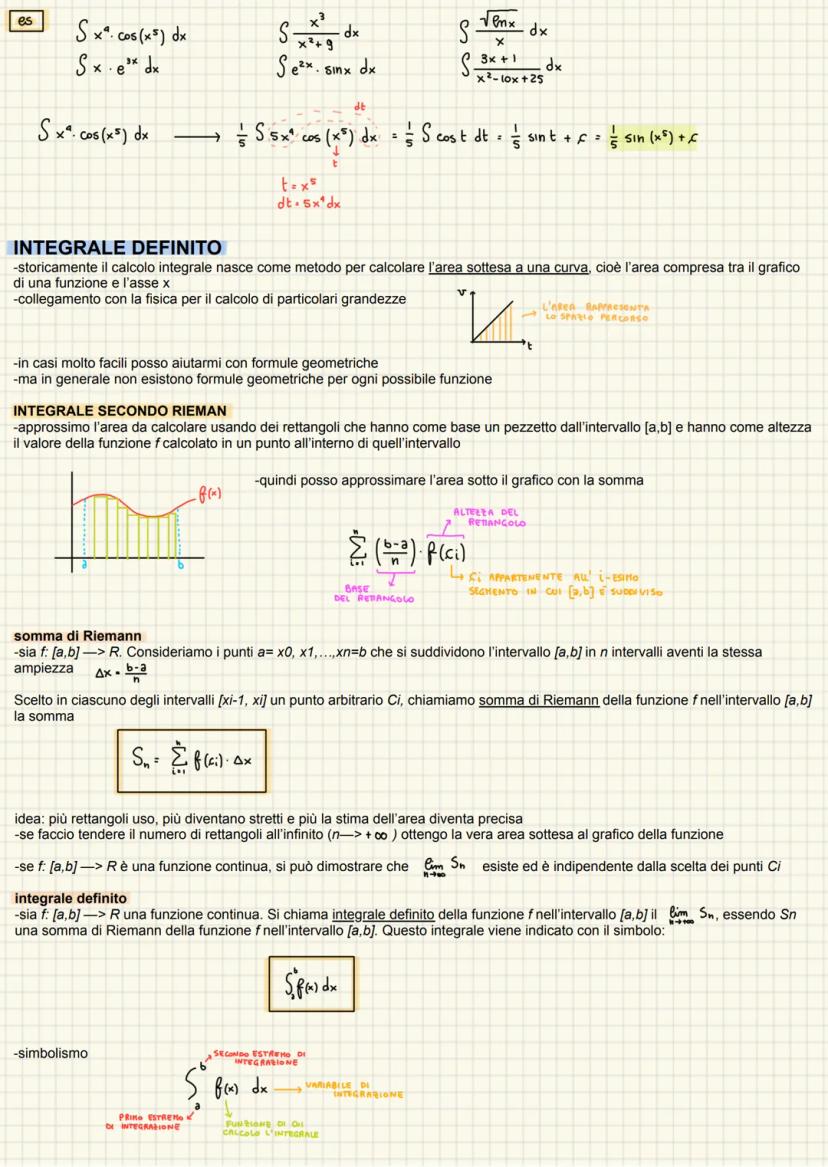 es
∫ x⁴ · cos(x⁵) dx
∫ x³/(x²+9) dx
∫ √(ln x)/x dx
∫ x · e³ˣ dx
∫ e²ˣ · sinx dx
∫ (3x+1)/(x²-10x+25) dx
∫ x⁴ · cos(x⁵) dx ⟶ 1/5 ∫ 5x⁴ cos(x⁵) dx = 1/5 ∫ cos t dt = 1/5 sin t + c = 1/5 sin(x⁵) + c
dt
t
t = x⁵
dt = 5x⁴ dx
INTEGRALE DEFINITO
-storicamente il calcolo integrale nasce come metodo per calcolare l'area sottesa a una curva, cioè l'area compresa tra il grafico
di una funzione e l'asse x
-collegamento con la fisica per il calcolo di particolari grandezze
v
t
L'AREA RAPPRESENTA
LO SPAZIO PERCORSO
-in casi molto facili posso aiutarmi con formule geometriche
-ma in generale non esistono formule geometriche per ogni possibile funzione
INTEGRALE SECONDO RIEMAN
-approssimo l'area da calcolare usando dei rettangoli che hanno come base un pezzetto dall'intervallo [a,b] e hanno come altezza
il valore della funzione f calcolato in un punto all'interno di quell'intervallo
f(x)
a
b
-quindi posso approssimare l'area sotto il grafico con la somma
ALTEZZA DEL
RETTANGOLO
n Σ i=1 ((b-a)/n) · f(ci)
BASE
DEL RETTANGOLO
ci APPARTENENTE ALL' i-ESIMO
SEGMENTO IN CUI [a,b] È SUDDIVISO
somma di Riemann
-sia f: [a,b] —> R. Consideriamo i punti a= x0, x1,…,xn=b che si suddividono l'intervallo [a,b] in n intervalli aventi la stessa
ampiezza Δx = (b-a)/n
Scelto in ciascuno degli intervalli [xi-1, xi] un punto arbitrario Ci, chiamiamo somma di Riemann della funzione f nell'intervallo [a,b]
la somma
Sn = n Σ i=1 f(ci) · Δx
idea: più rettangoli uso, più diventano stretti e più la stima dell'area diventa precisa
-se faccio tendere il numero di rettangoli all'infinito (n—> +∞ ) ottengo la vera area sottesa al grafico della funzione
-se f: [a,b] —> R è una funzione continua, si può dimostrare che lim n→+∞ Sn esiste ed è indipendente dalla scelta dei punti Ci
integrale definito
-sia f: [a,b] —> R una funzione continua. Si chiama integrale definito della funzione f nell'intervallo [a,b] il lim n→+∞ Sn, essendo Sn
una somma di Riemann della funzione f nell'intervallo [a,b]. Questo integrale viene indicato con il simbolo:
∫ₐᵇ f(x) dx
-simbolismo
SECONDO ESTREMO DI
INTEGRAZIONE
∫ₐᵇ f(x) dx
VARIABILE DI
INTEGRAZIONE
PRIMO ESTREMO
DI INTEGRAZIONE
FUNZIONE DI CUI
CALCOLO L'INTEGRALE